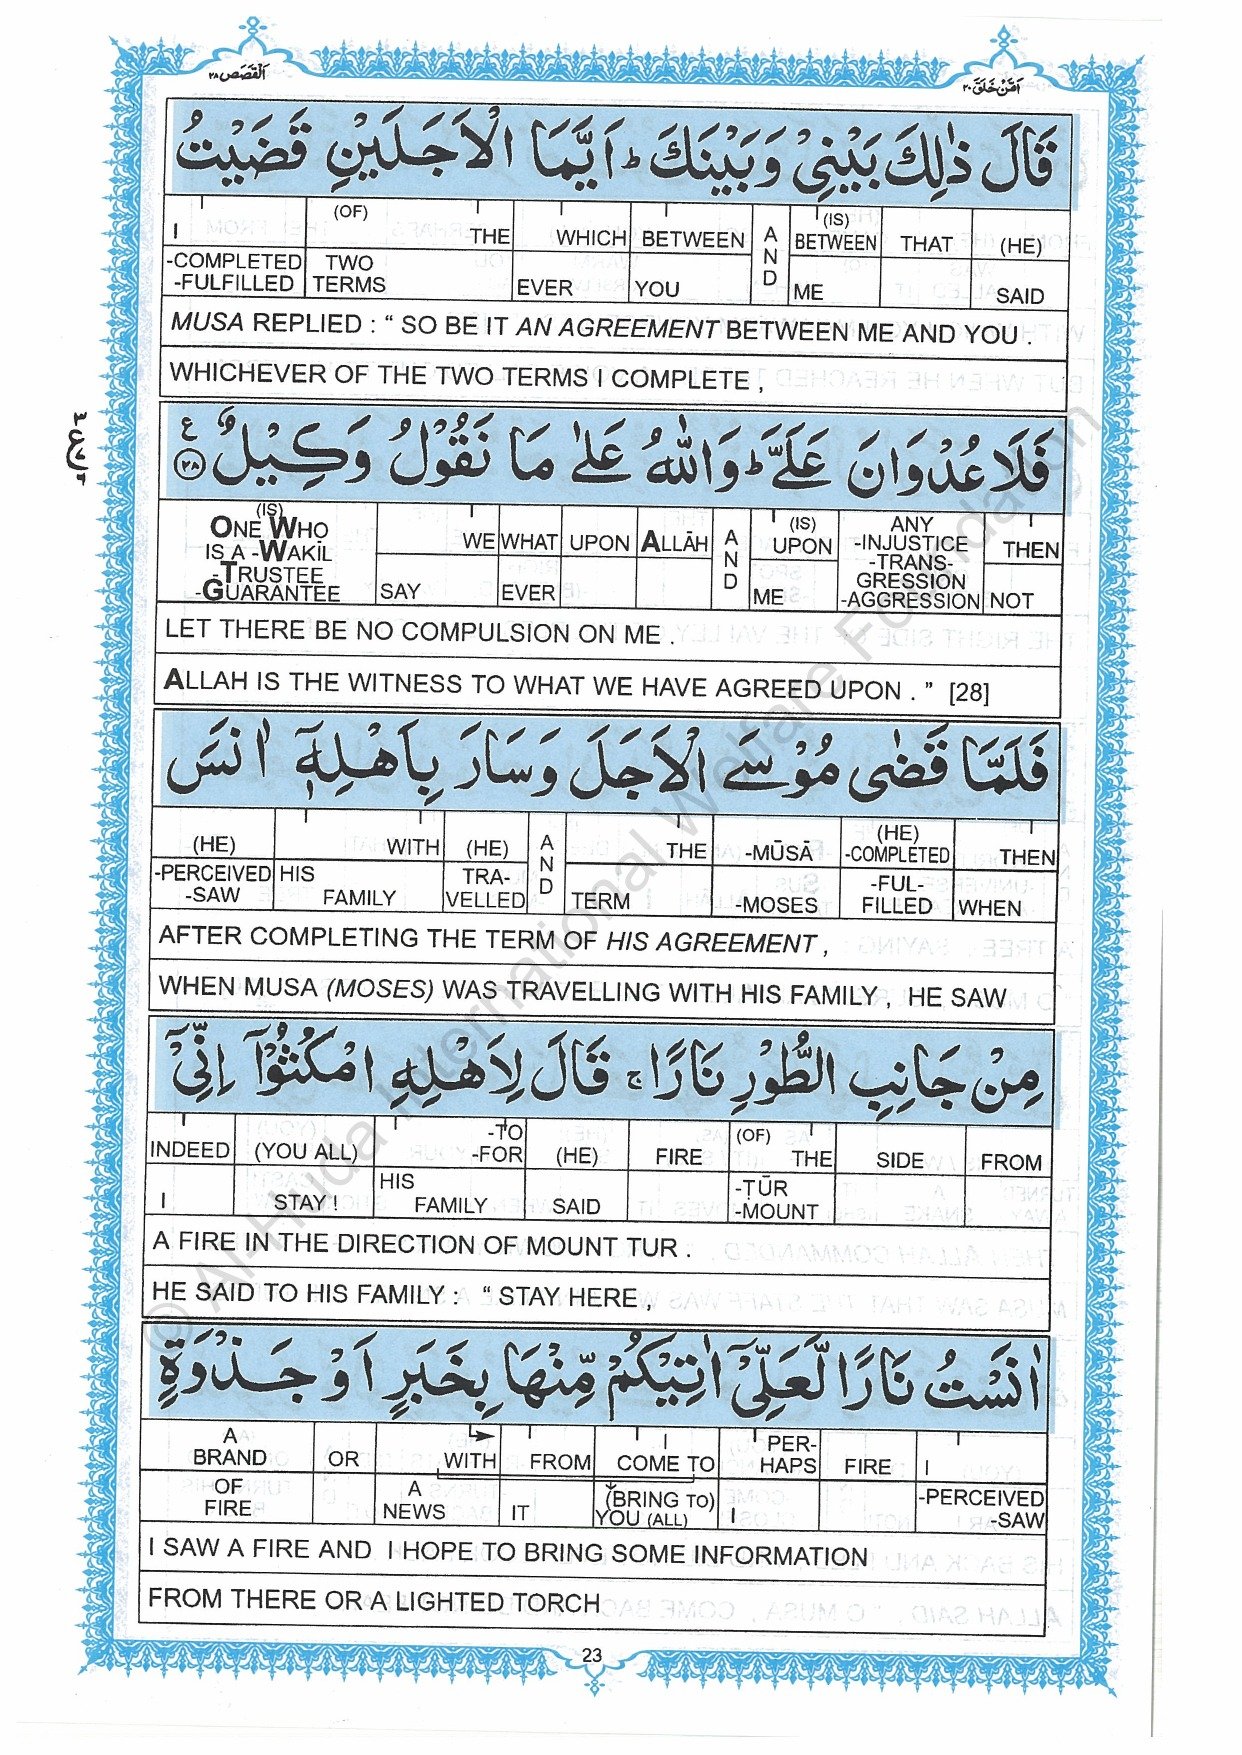 القصص ٢٨
امّن خلق ٢٠
قَالَ ذٰلِكَ بَيْنِيْ وَبَيْنَكَ ؕ اَيَّمَا الْاَجَلَيْنِ قَضَيْتُ
(HE) SAID THAT (IS) BETWEEN ME AND BETWEEN YOU WHICH EVER (OF) THE TWO TERMS I -COMPLETED -FULFILLED
MUSA REPLIED : “ SO BE IT AN AGREEMENT BETWEEN ME AND YOU .
WHICHEVER OF THE TWO TERMS I COMPLETE ,
فَلَا عُدْوَانَ عَلَيَّ ؕ وَاللّٰهُ عَلٰى مَا نَقُوْلُ وَكِيْلٌ ۝٢٨ ع
THEN NOT ANY -INJUSTICE -TRANS-GRESSION -AGGRESSION (IS) UPON ME AND ALLĀH UPON WHAT EVER WE SAY (IS) ONE WHO IS A -WAKĪL -TRUSTEE -GUARANTEE
LET THERE BE NO COMPULSION ON ME .
ALLAH IS THE WITNESS TO WHAT WE HAVE AGREED UPON . ” [28]
فَلَمَّا قَضٰى مُوْسَى الْاَجَلَ وَسَارَ بِاَهْلِهٖۤ اٰنَسَ
THEN WHEN (HE) -COMPLETED -FUL-FILLED -MŪSĀ -MOSES THE TERM AND (HE) TRA-VELLED WITH HIS FAMILY (HE) -PERCEIVED -SAW
AFTER COMPLETING THE TERM OF HIS AGREEMENT ,
WHEN MUSA (MOSES) WAS TRAVELLING WITH HIS FAMILY , HE SAW
مِنْ جَانِبِ الطُّوْرِ نَارًا ۚ قَالَ لِاَهْلِهِ امْكُثُوْۤا اِنِّيْۤ
FROM SIDE (OF) THE -ṬŪR -MOUNT FIRE (HE) SAID -TO -FOR HIS FAMILY (YOU ALL) STAY ! INDEED I
A FIRE IN THE DIRECTION OF MOUNT TUR .
HE SAID TO HIS FAMILY : “ STAY HERE ,
اٰنَسْتُ نَارًا لَّعَلِّيْۤ اٰتِيْكُمْ مِّنْهَا بِخَبَرٍ اَوْ جَذْوَةٍ
I -PERCEIVED -SAW FIRE PER-HAPS I I COME TO (BRING TO) YOU (ALL) FROM IT WITH A NEWS OR A BRAND OF FIRE
I SAW A FIRE AND I HOPE TO BRING SOME INFORMATION
FROM THERE OR A LIGHTED TORCH
23
© Al-Huda International Welfare Foundation